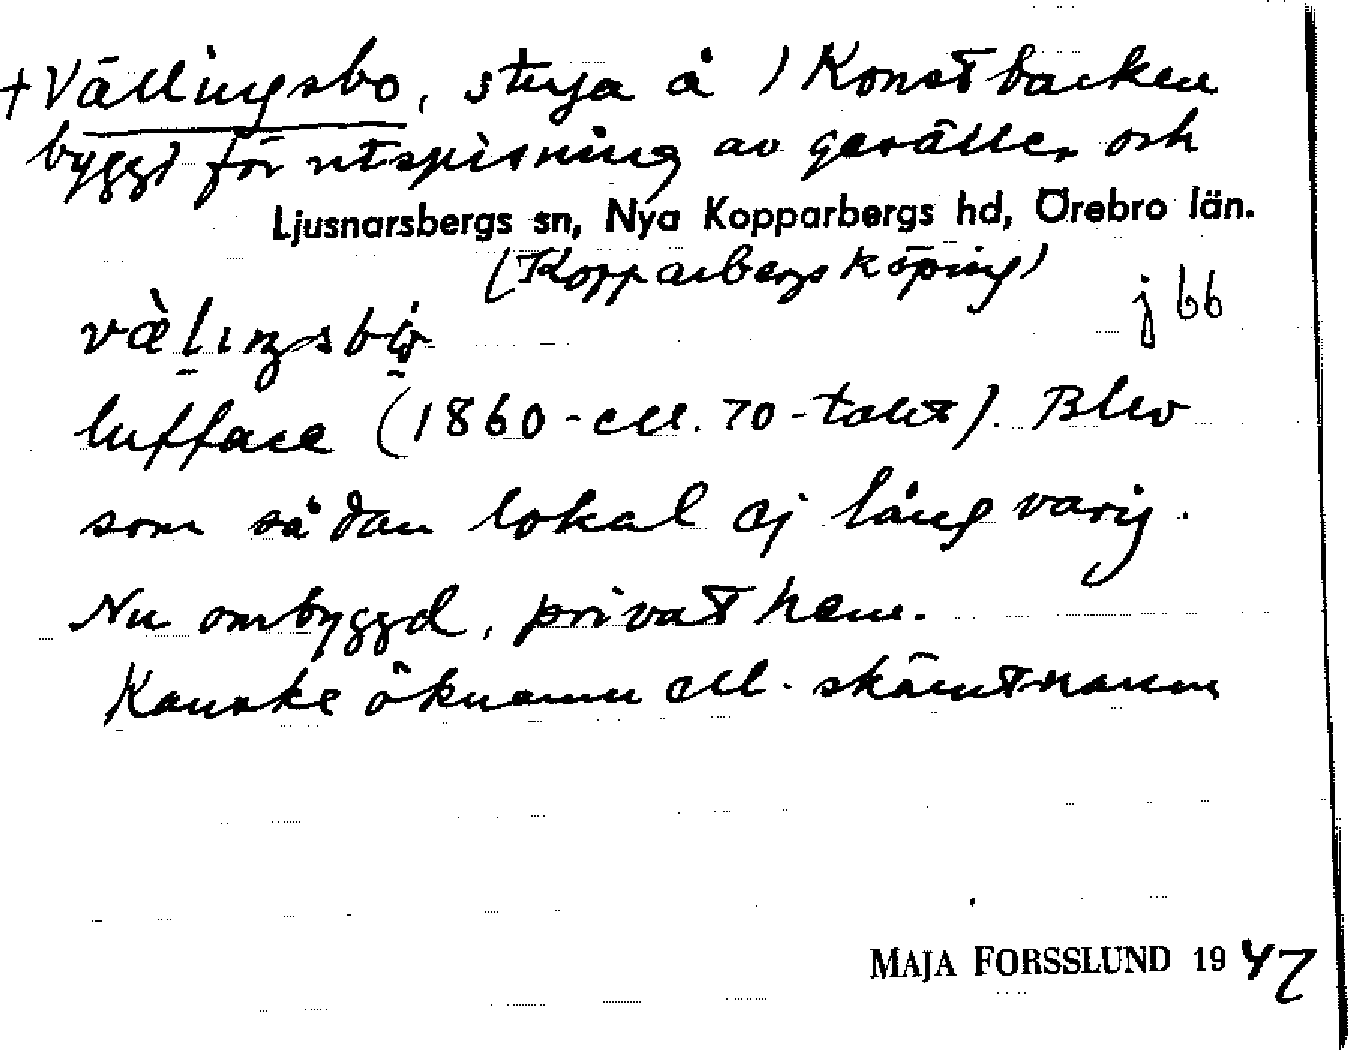 + Vällingsbo, stuga å ) Konstbacken
byggd för utspisning av gesäller och
Ljusnarsbergs sn, Nya Kopparbergs hd, Örebro län.
(Kopparbergs köping)
j 66
luffare (1860- ell. 70-talet). Blev
som sådan lokal ej långvarig.
Nu ombyggd, privat hem.
Kanske öknamn ell. skämtnamn
MAJA FORSSLUND 1947